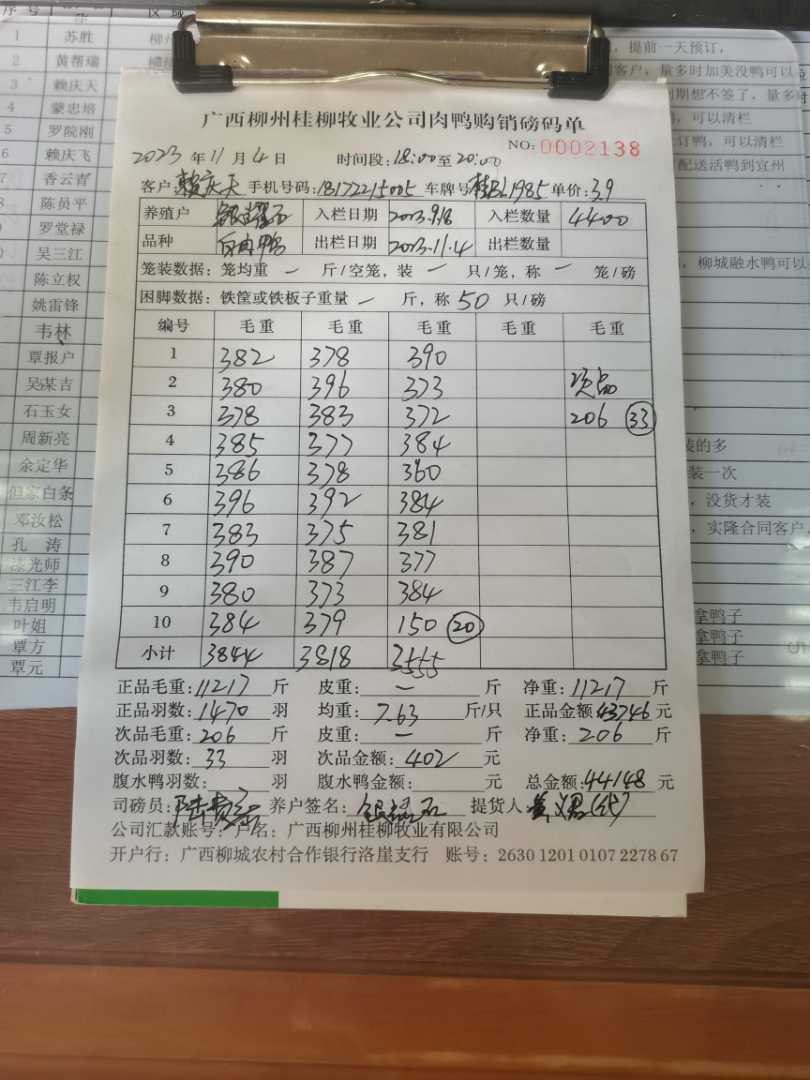 序号
区域
1 苏胜 柳州
2 黄帮瑞
3 赖庆天
4 蒙忠培
5 罗院刚
6 赖庆飞
7 香云青
8 陈员平
罗堂禄
吴三江
陈立权
姚雷锋
韦林
覃报户
吴某吉
石玉女
周新亮
余定华
但家白条
邓汝松
孔 涛
漆光师
三江李
韦启明
叶姐
覃方
覃元
，提前一天预订，
客户，量多时加美没鸭可以
期想不签了，量多时
，可以清栏
订鸭，可以清栏
配送活鸭到宜州
，柳城融水鸭可以
装的多
装一次
，没货才装
，实隆合同客户
拿鸭子
拿鸭子
拿鸭子
广西柳州桂柳牧业公司肉鸭购销磅码单
NO: 0002138
2023 年 11 月 4 日 时间段: 18:00 至 20:00
客户 赖庆天 手机号码: 18172215005 车牌号 1985 单价: 3.9
养殖户 银耀石 入栏日期 2023.9.18 入栏数量 4400
品种 白肉鸭 出栏日期 2023.11.4 出栏数量
笼装数据: 笼均重 — 斤/空笼, 装 — 只/笼, 称 — 笼/磅
困脚数据: 铁筐或铁板子重量 — 斤, 称 50 只/磅
编号 毛重 毛重 毛重 毛重 毛重
1 382 378 390
2 380 396 373 次品
3 378 383 372 206 33
4 385 377 384
5 386 378 360
6 396 392 384
7 383 375 381
8 390 387 377
9 380 373 384
10 384 379 150 20
小计 3844 3818 3555
正品毛重: 11217 斤 皮重: — 斤 净重: 11217 斤
正品羽数: 1470 羽 均重: 7.63 斤/只 正品金额: 43746 元
次品毛重: 206 斤 皮重: — 斤 净重: 206 斤
次品羽数: 33 羽 次品金额: 402 元
腹水鸭羽数: 羽 腹水鸭金额: 元 总金额: 44148 元
司磅员: 养户签名: 银耀石 提货人
公司汇款账号: 户名: 广西柳州桂柳牧业有限公司
开户行: 广西柳城农村合作银行洛崖支行 账号: 2630 1201 0107 2278 67